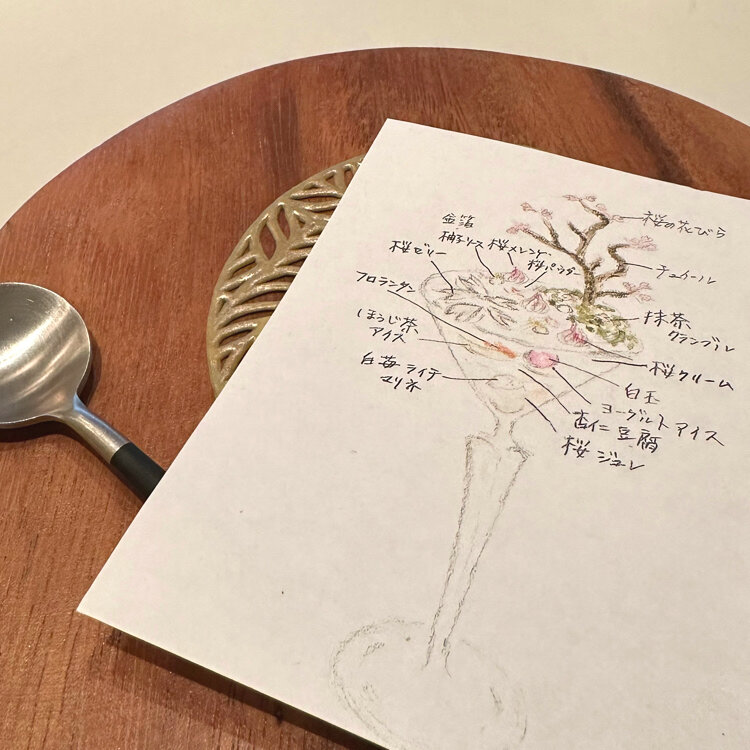 金箔
柚子ソース 桜メレンゲ
桜パウダー
桜ゼリー
フロランタン
ほうじ茶
アイス
白苺 ライチ
マリネ
桜の花びら
チュイール
抹茶
クランブル
桜クリーム
白玉
ヨーグルトアイス
杏仁豆腐
桜ジュレ